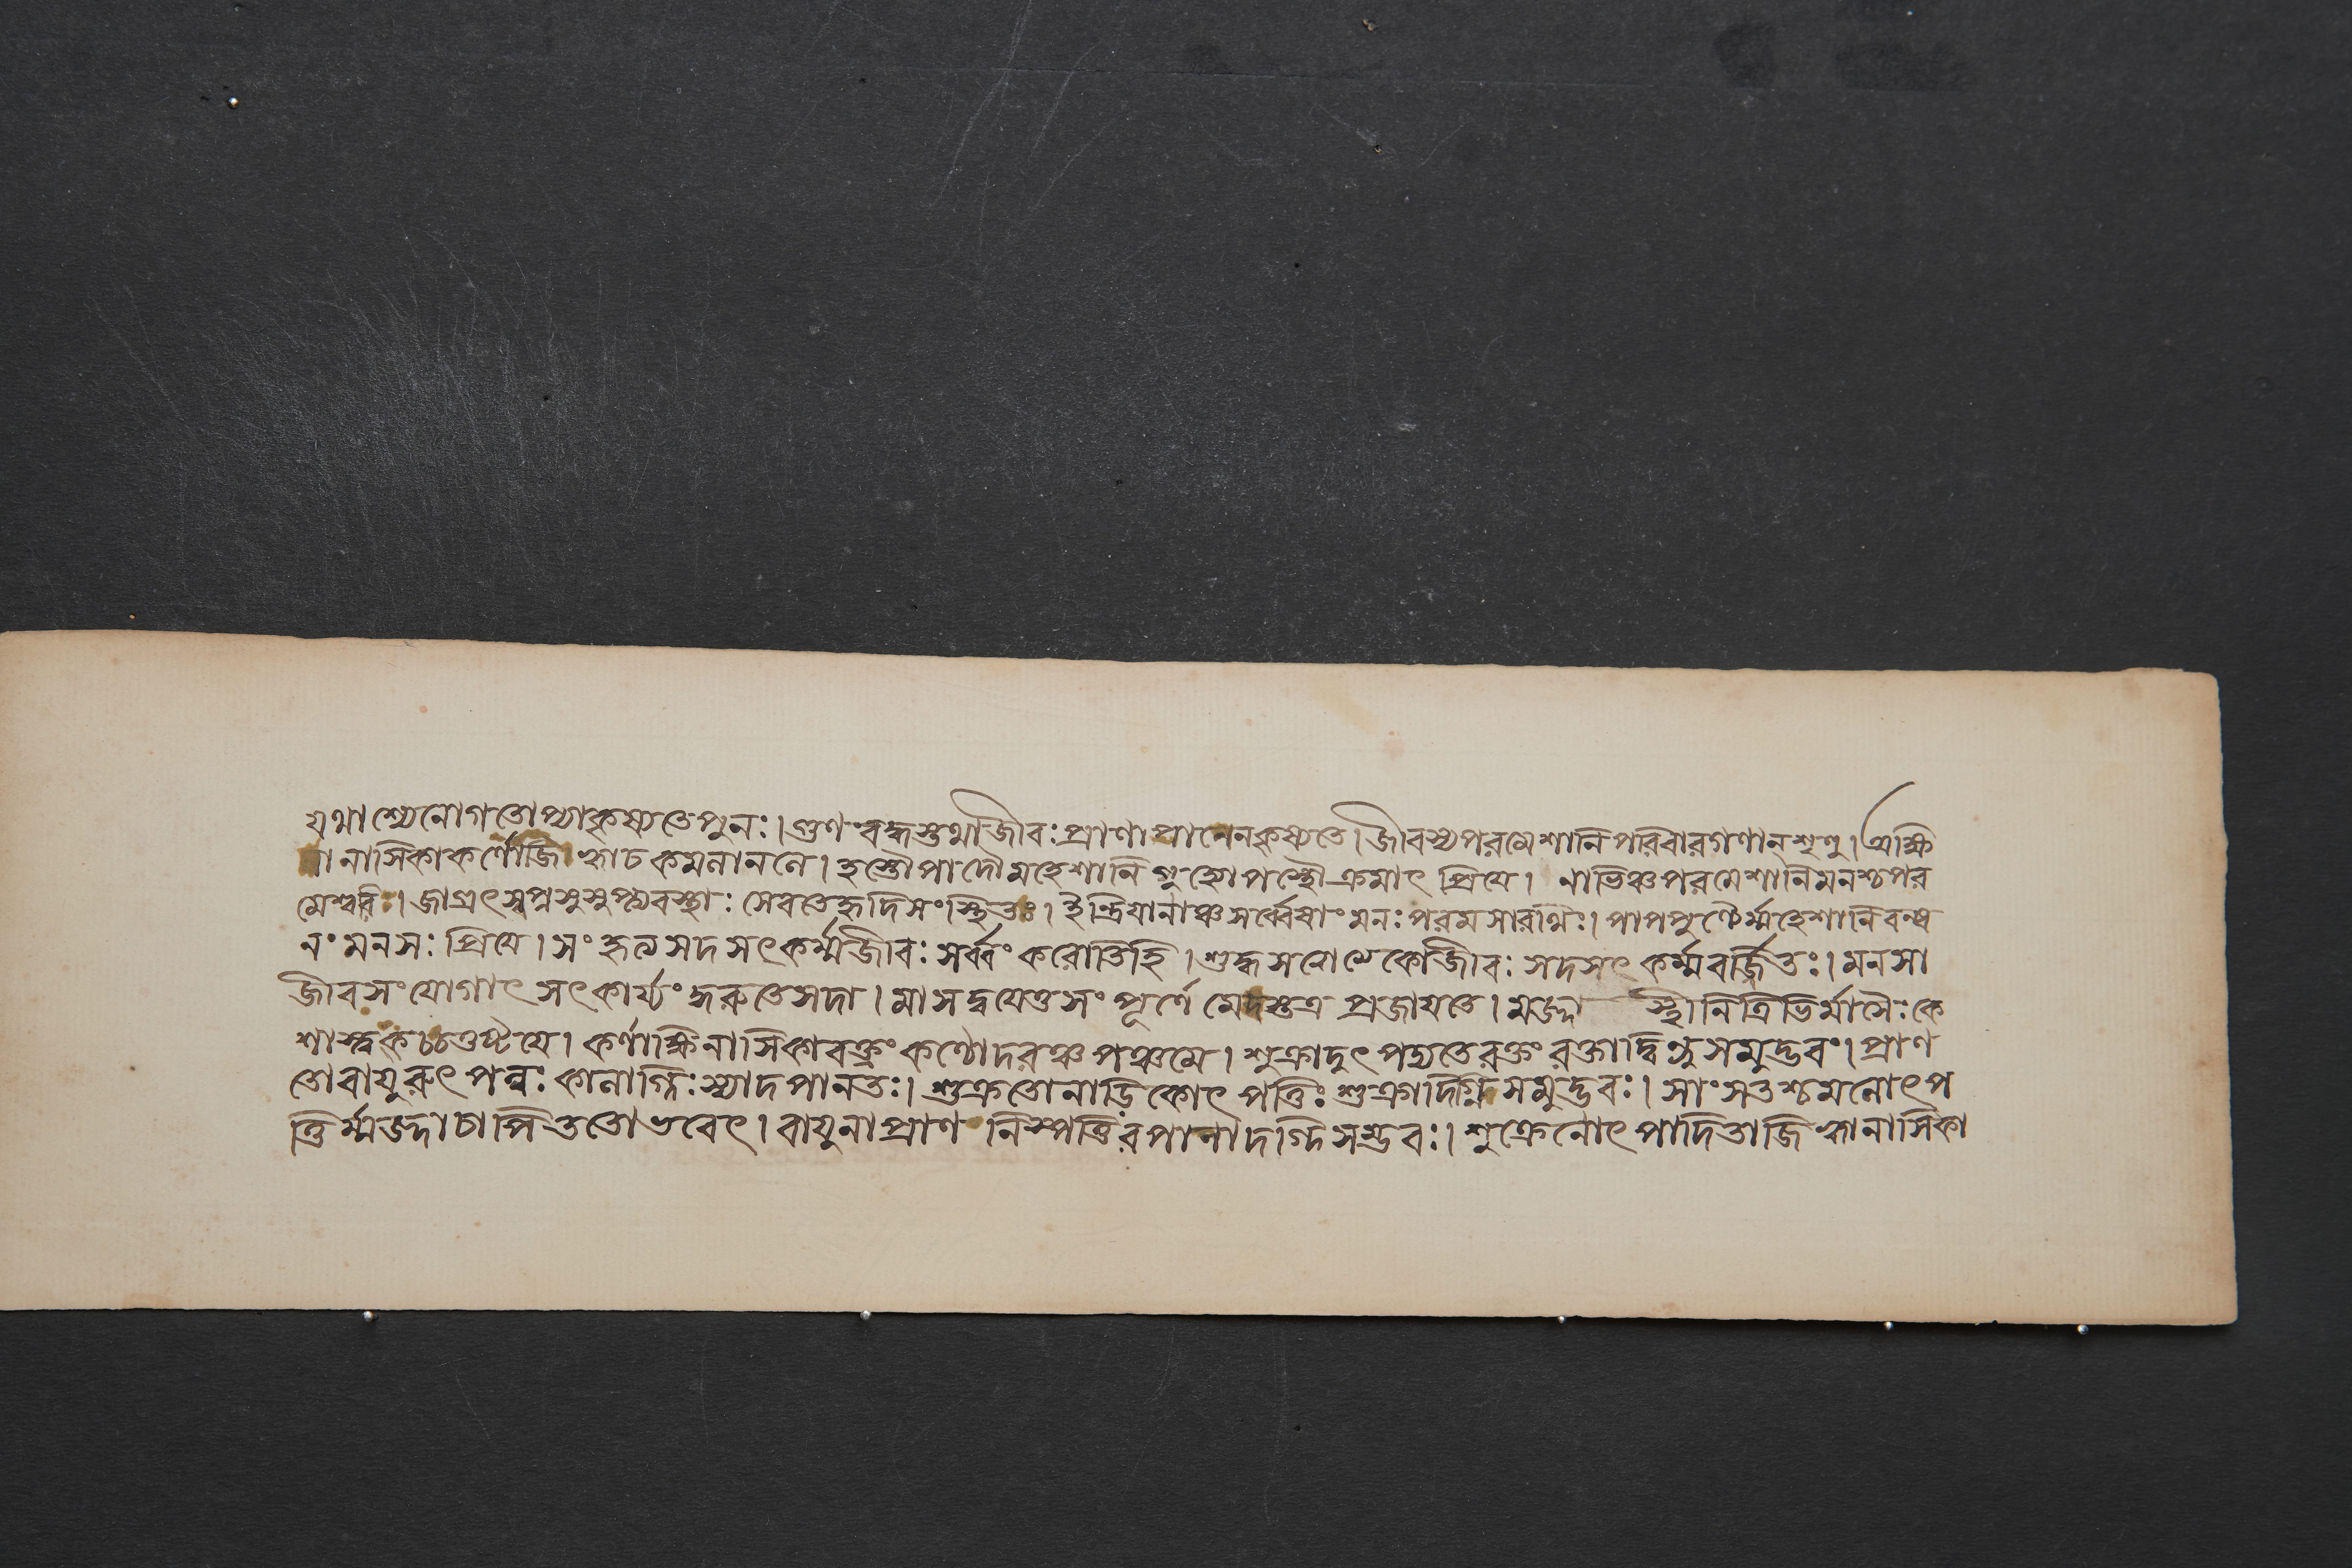 যথাশ্যেনোগতোপ্যাকৃষ্যতেপুনঃ।গুণংবদ্ধস্তথাজীবঃপ্রাণাপানেনকৃষ্যতে।জীবস্যপরমেশানিপরিবারগণান্শৃণু।অক্ষি
নাসিকাকর্ণোজিহ্বাচকমলাননে।হস্তৌপাদৌমহেশানিগুহ্যোপস্থৌক্রমাৎ প্রিয়ে। নাভিঞ্চপরমেশানিমনশ্চপর
মেশ্বরি।জাগ্রৎস্বপ্নসুসুপ্ত্যবস্থাঃসেবতেহৃদিসংস্থিতঃ।ইন্দ্রিয়ানাঞ্চসর্ব্বেষাংমনঃপরমসারথিঃ।পাপপুণ্যৈর্ম্মহেশানিবন্ধ
নংমনসঃপ্রিয়ে।সংহৃত্যসদসৎকর্ম্মজীবঃসর্ব্বংকরোতিহি।শুদ্ধসত্ত্বাত্মকোজীবঃসদসৎকর্ম্মবর্জ্জিতঃ।মনসা
জীবসংযোগাৎসৎকার্য্যংকুরুতেসদা।মাসদ্বয়েতুসংপূর্ণেমেদস্তত্রপ্রজায়তে।মজ্জাস্থীনিত্রিভির্মাসৈঃকে
শাস্ত্বকচচতুষ্টয়ে।কর্ণাক্ষিনাসিকাবক্ত্রংকণ্ঠোদরঞ্চপঞ্চমে।শুক্রাদুৎপদ্যতেরক্তংরক্তাদ্বিন্দুসমুদ্ভবং।প্রাণ
তোবায়ুরুৎপন্নঃকালাগ্নিঃস্যাদপানতঃ।শুক্রতোনাড়িকোৎপত্তিঃশুক্রাদগ্নিসমুদ্ভবঃ।মাংসতশ্চমনোৎপ
ত্তির্ম্মজ্জাচাপিততোভবেৎ।বায়ুনাপ্রাণনিস্পত্তিরপানাদগ্নিসম্ভবঃ।শুক্রেনোৎপাদিতাজিহ্বানাসিকা